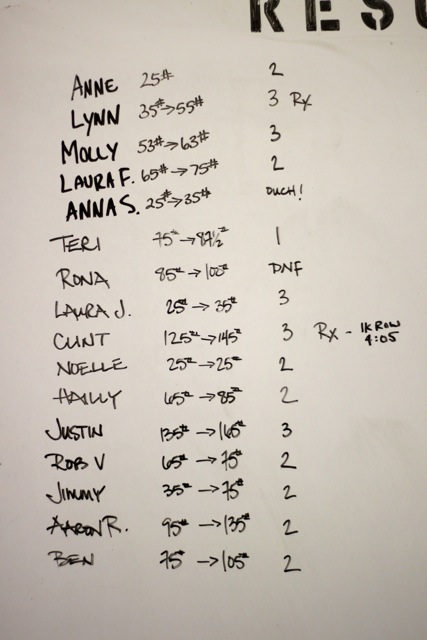 RESU
ANNE 25# 2
LYNN 35#→55# 3 Rx
MOLLY 53#→63# 3
LAURA F. 65#→75# 2
ANNA S. 25#→35# OUCH!
TERI 75#→87½# 1
RONA 85#→100# DNF
LAURA J. 25#→35# 3
CLINT 125#→145# 3 Rx - 1K ROW 4:05
NOELLE 25#→25# 2
HAILLY 65#→85# 2
JUSTIN 135#→165# 3
ROB V 65#→75# 2
JIMMY 35#→75# 2
AARON R. 95#→135# 2
BEN 75#→105# 2